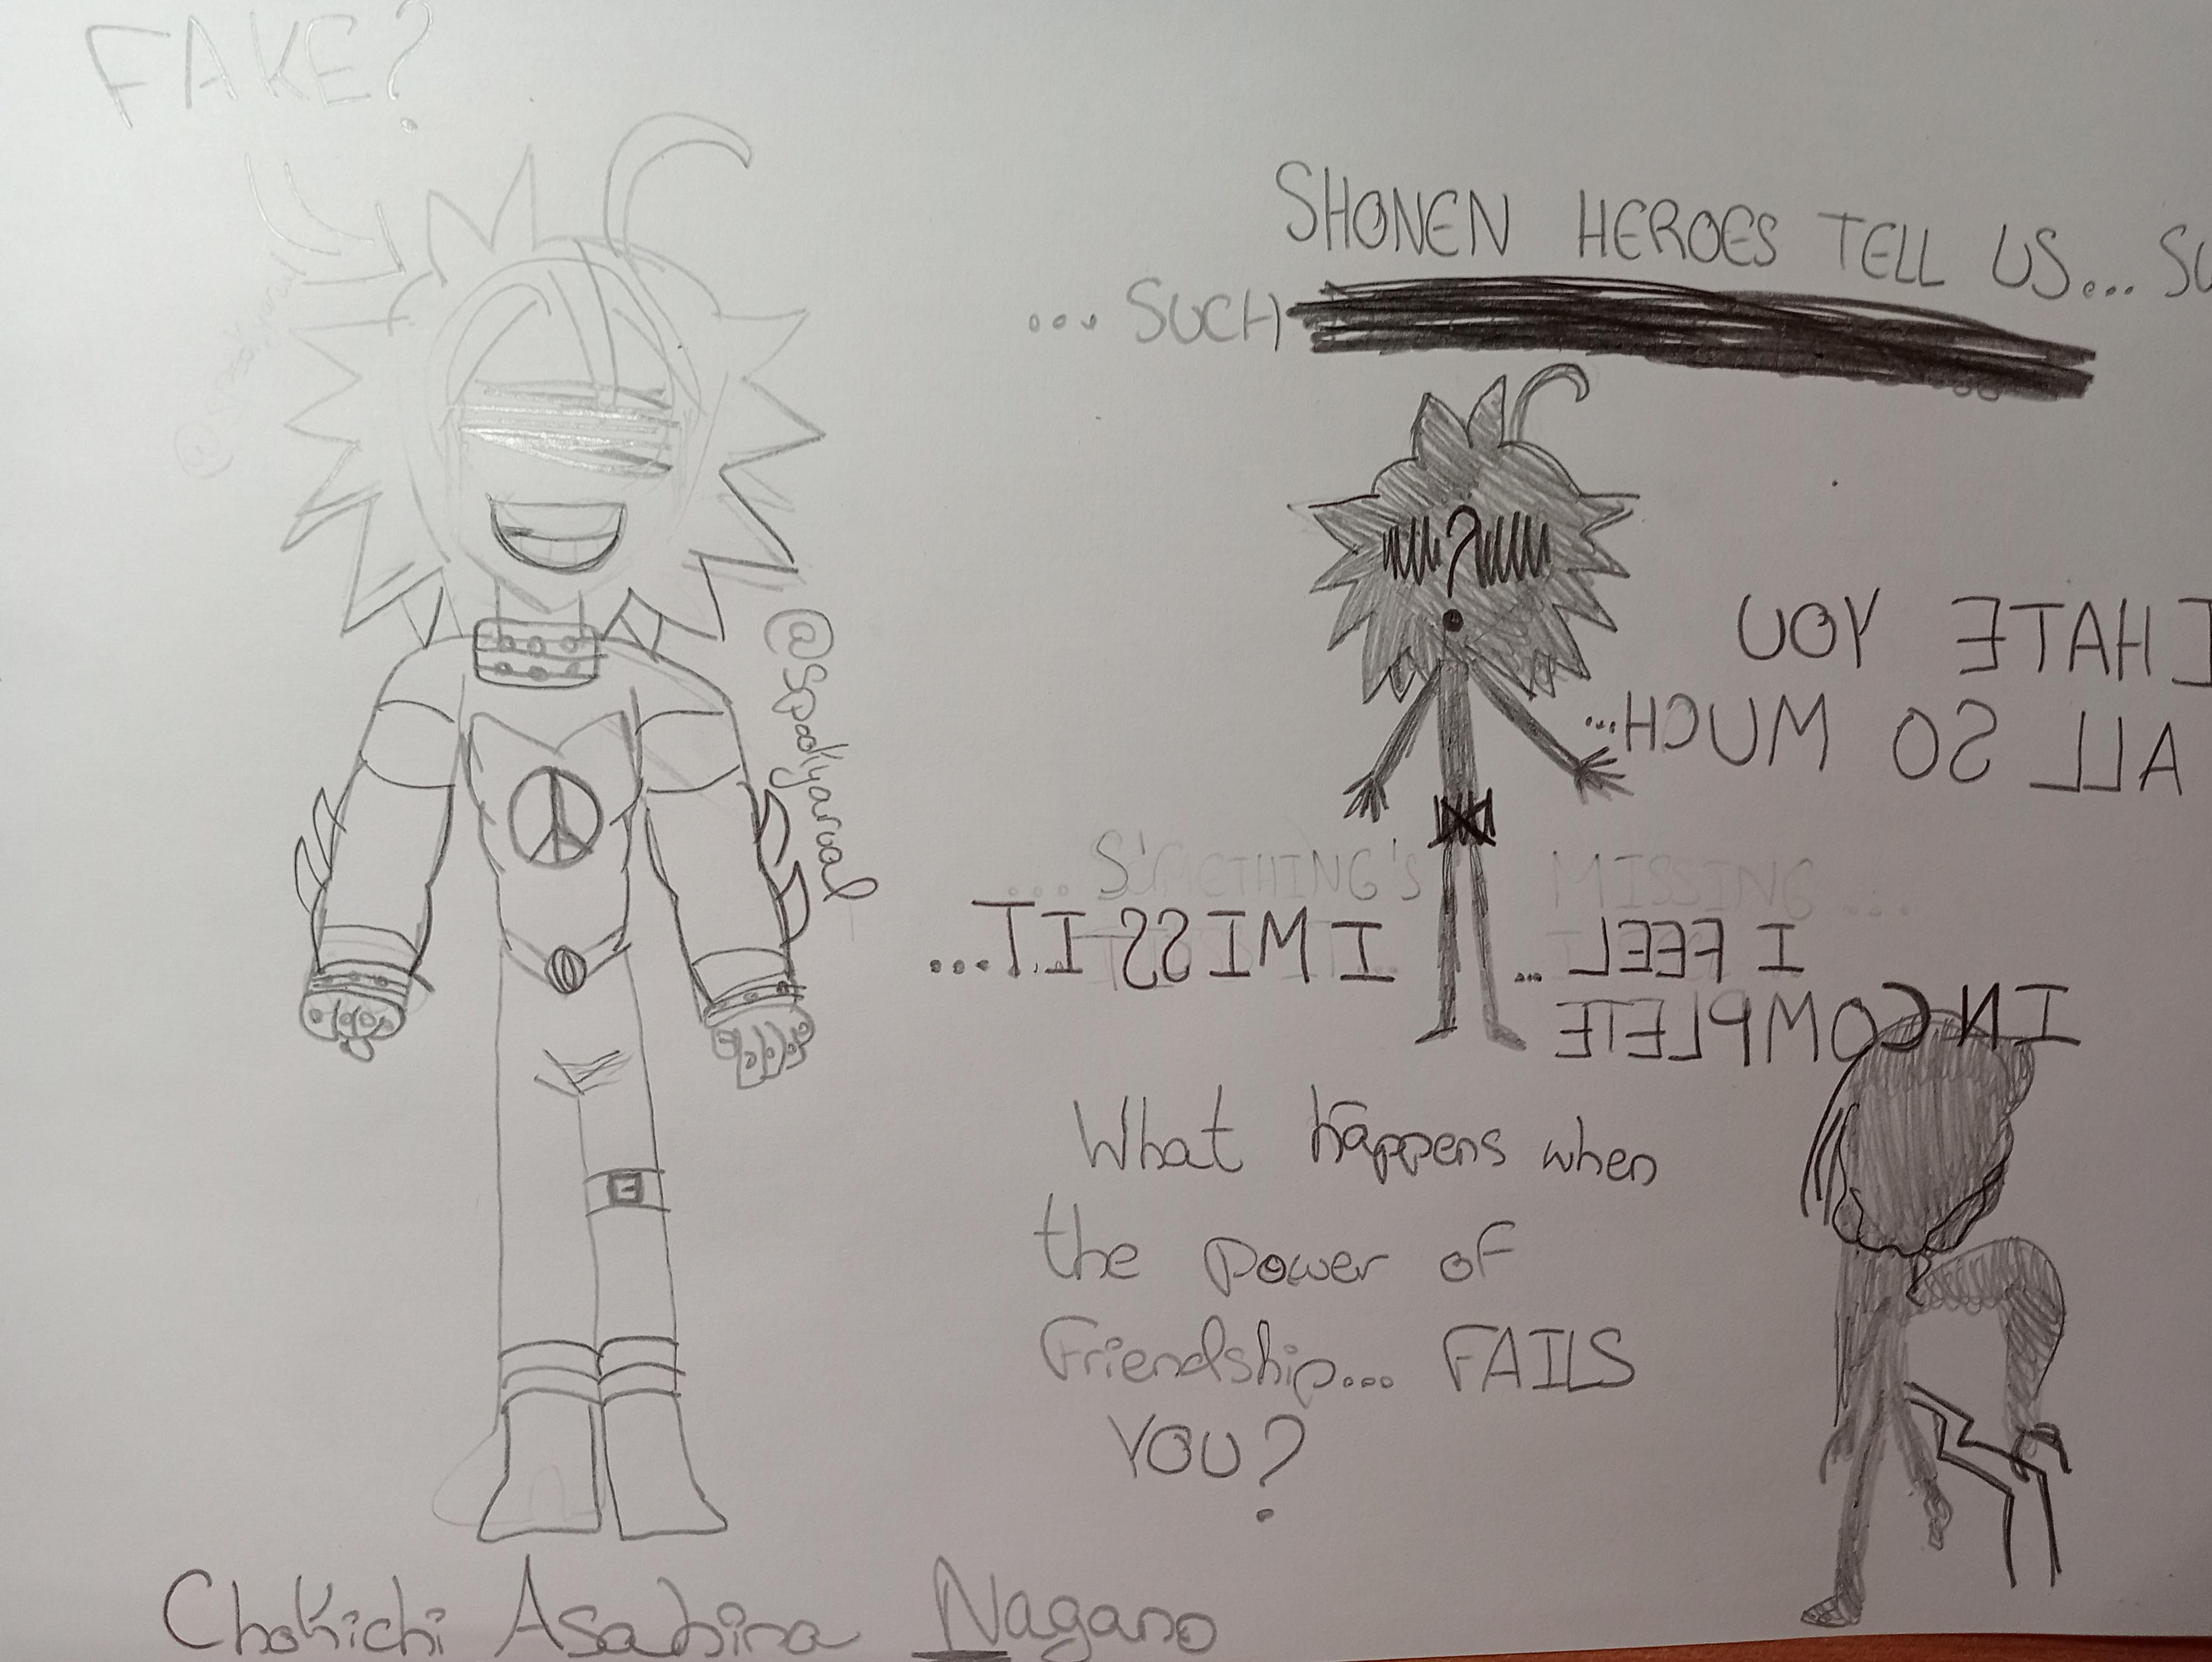 FAKE?
@spookyarual
SHONEN HEROES TELL US... SU
... SUCH
?
I HATE YOU
ALL SO MUCH...
@spookyarual
... SOMETHING'S MISSING ...
I FEEL ... I MISS IT...
INCOMPLETE
What happens when
the power of
Friendship... FAILS
YOU?
Chokichi Asahina Nagano